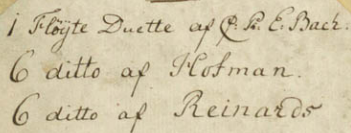 1 Flöyte Duette af C. P. E. Bach.
6 ditto af Hofman.
6 ditto af Reinards